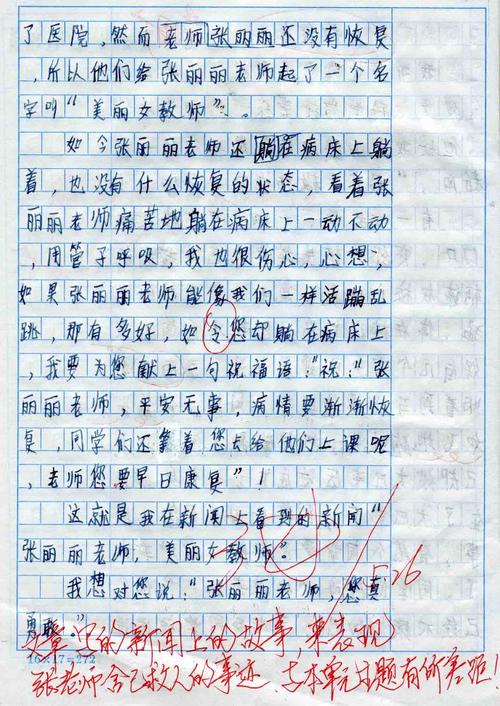 了医院，然而老师张丽丽还没有恢复
，所以他们给张丽丽老师起了一个名
字叫“美丽女教师”。
如今张丽丽老师还躺在病床上躺
着，也没有什么恢复的状态，看着张
丽丽老师痛苦地躺在病床上一动不动
，用管子呼吸，我也很伤心，心想，
如果张丽丽老师能像我们一样活蹦乱
跳，那有多好，如令您却躺在病床上
，我要为您献上一句祝福语：“祝：“张
丽丽老师，平安无事，病情要渐渐恢
复，同学们还等着您去给他们上课呢
，老师您要早日康复”！
这就是我在新闻上看到的新闻“
张丽丽老师，美丽女教师”。
我想对您说：“张丽丽老师，您真
勇敢。”
5.26
的新闻上的故事，来表现
16×17=272
张老师舍己救人的事迹，与本单元主题有所差距！